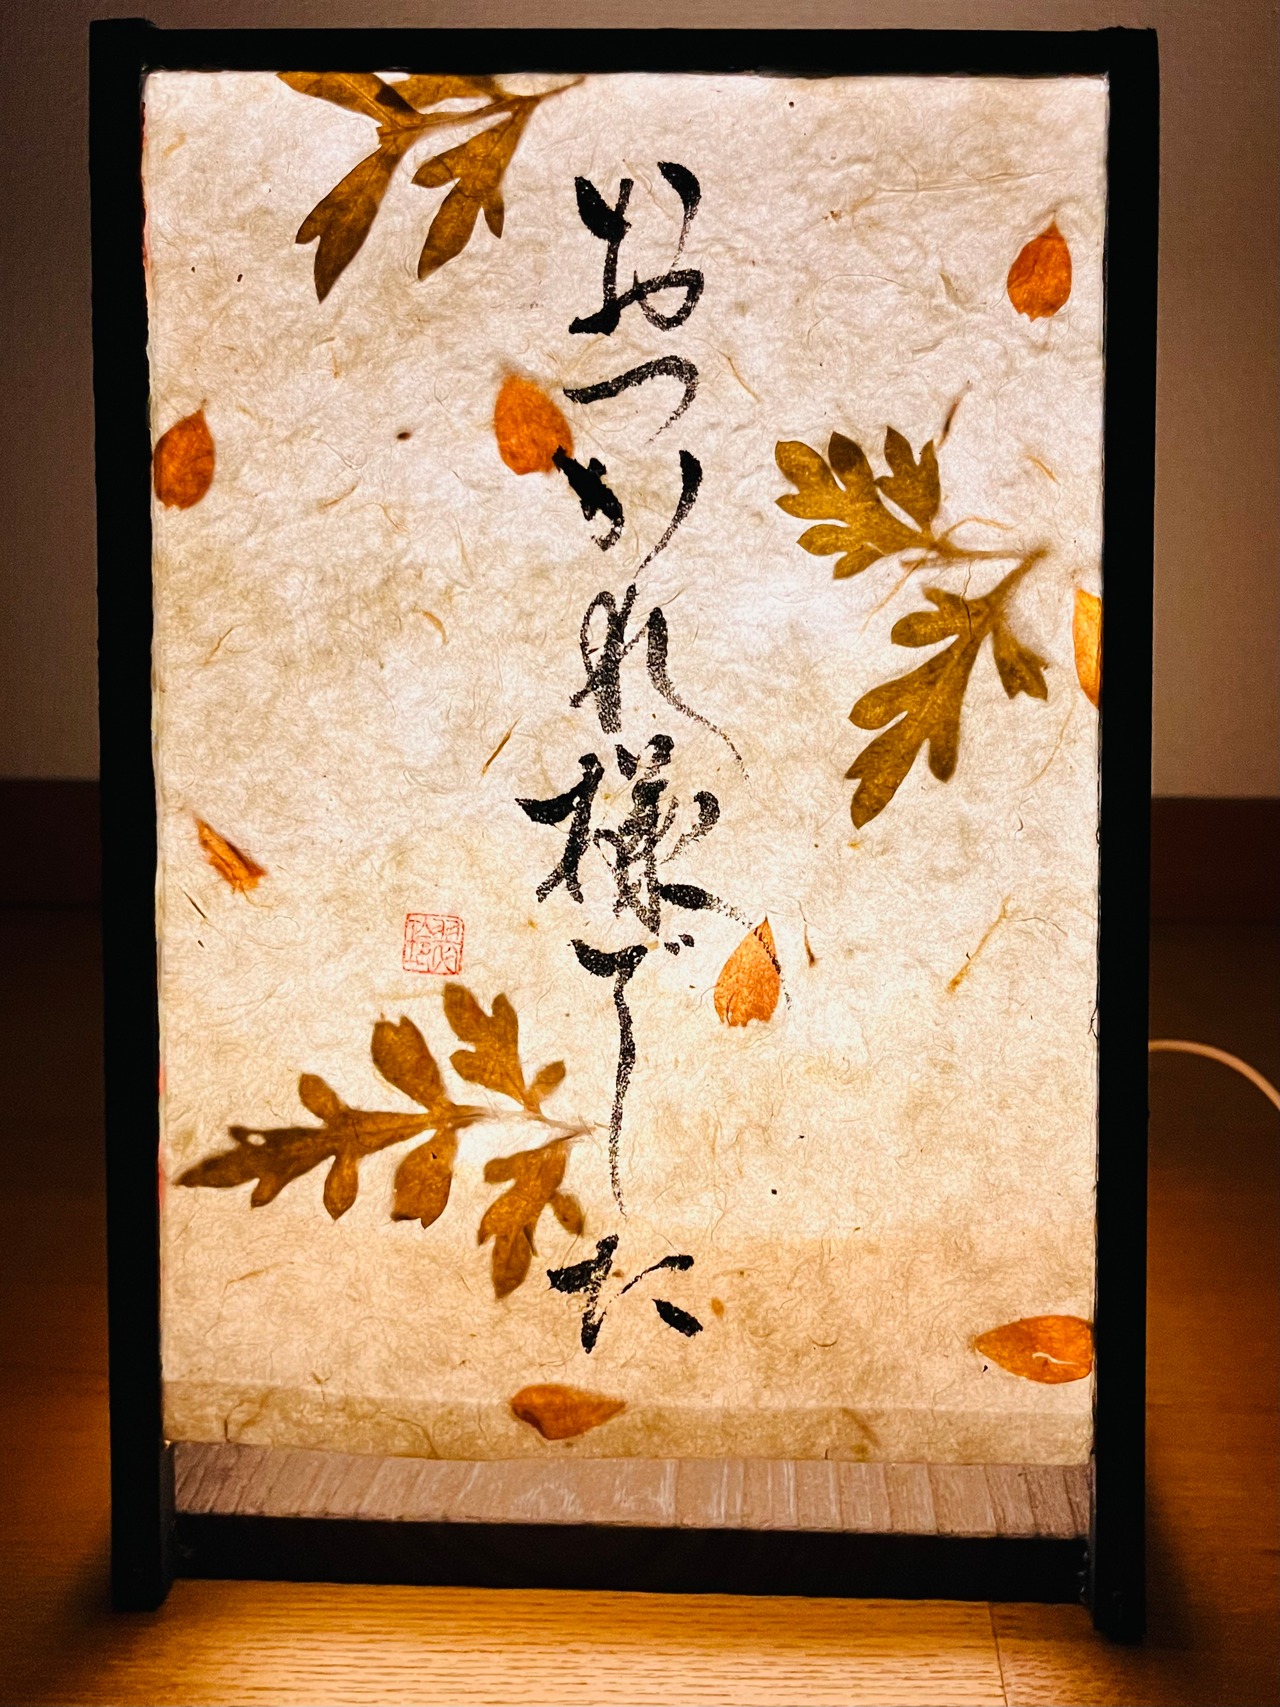 おつかれ様でした